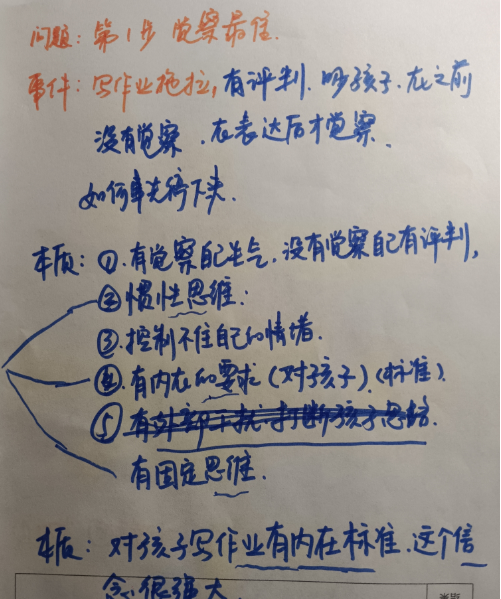 问题：第1步 觉察最佳.
事件：写作业拖拉，有评判. 吼孩子. 在之前
没有觉察. 在表达后才觉察.
如何事先停下来.
本质：①.有觉察自己生气. 没有觉察自己有评判，
②惯性思维.
③.控制不住自己的情绪.
④.有内在的要求（对孩子）（标准）.
⑤有外部干扰.打断孩子思绪.
有固定思维.
本质：对孩子写作业有内在标准.这个信
念.很强大.